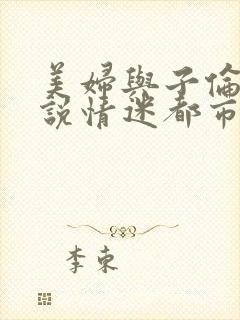 美婦與子倫
說情迷都市
李東